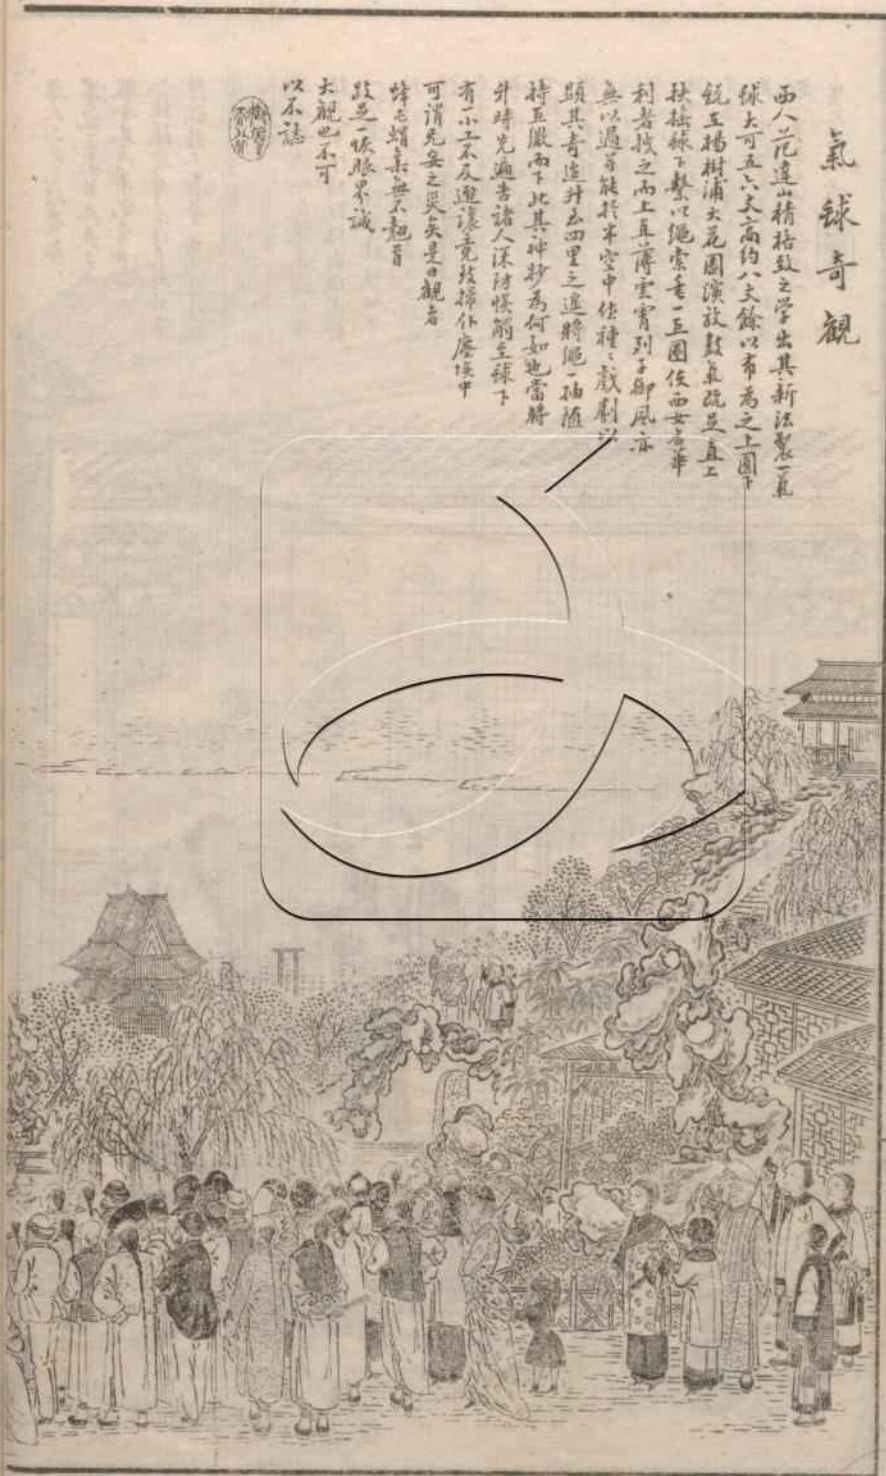 氣球奇觀
西人范達山精格致之学出其新法製一氣
球大可五六丈高約八丈餘以布為之上圓下
銳在楊樹浦大花園演放鼓氣既足直上
扶搖球下繫以繩索垂一巨圈使西女名華
利者拽之而上直薄雲霄列子御風亦
無以過并能於半空中作種〻戲劇以
顯其奇迨升至四里之遙將繩一抽隨
持巨繖而下此其神妙為何如也當將
升時先遍告諸人深防悮觸至球下
有一小工不及避讓竟致掃仆塵埃中
可謂无妄之災矣是日觀者
蜂屯蝟集無不翹首
跂足一恢眼界誠
大觀也不可
以不誌